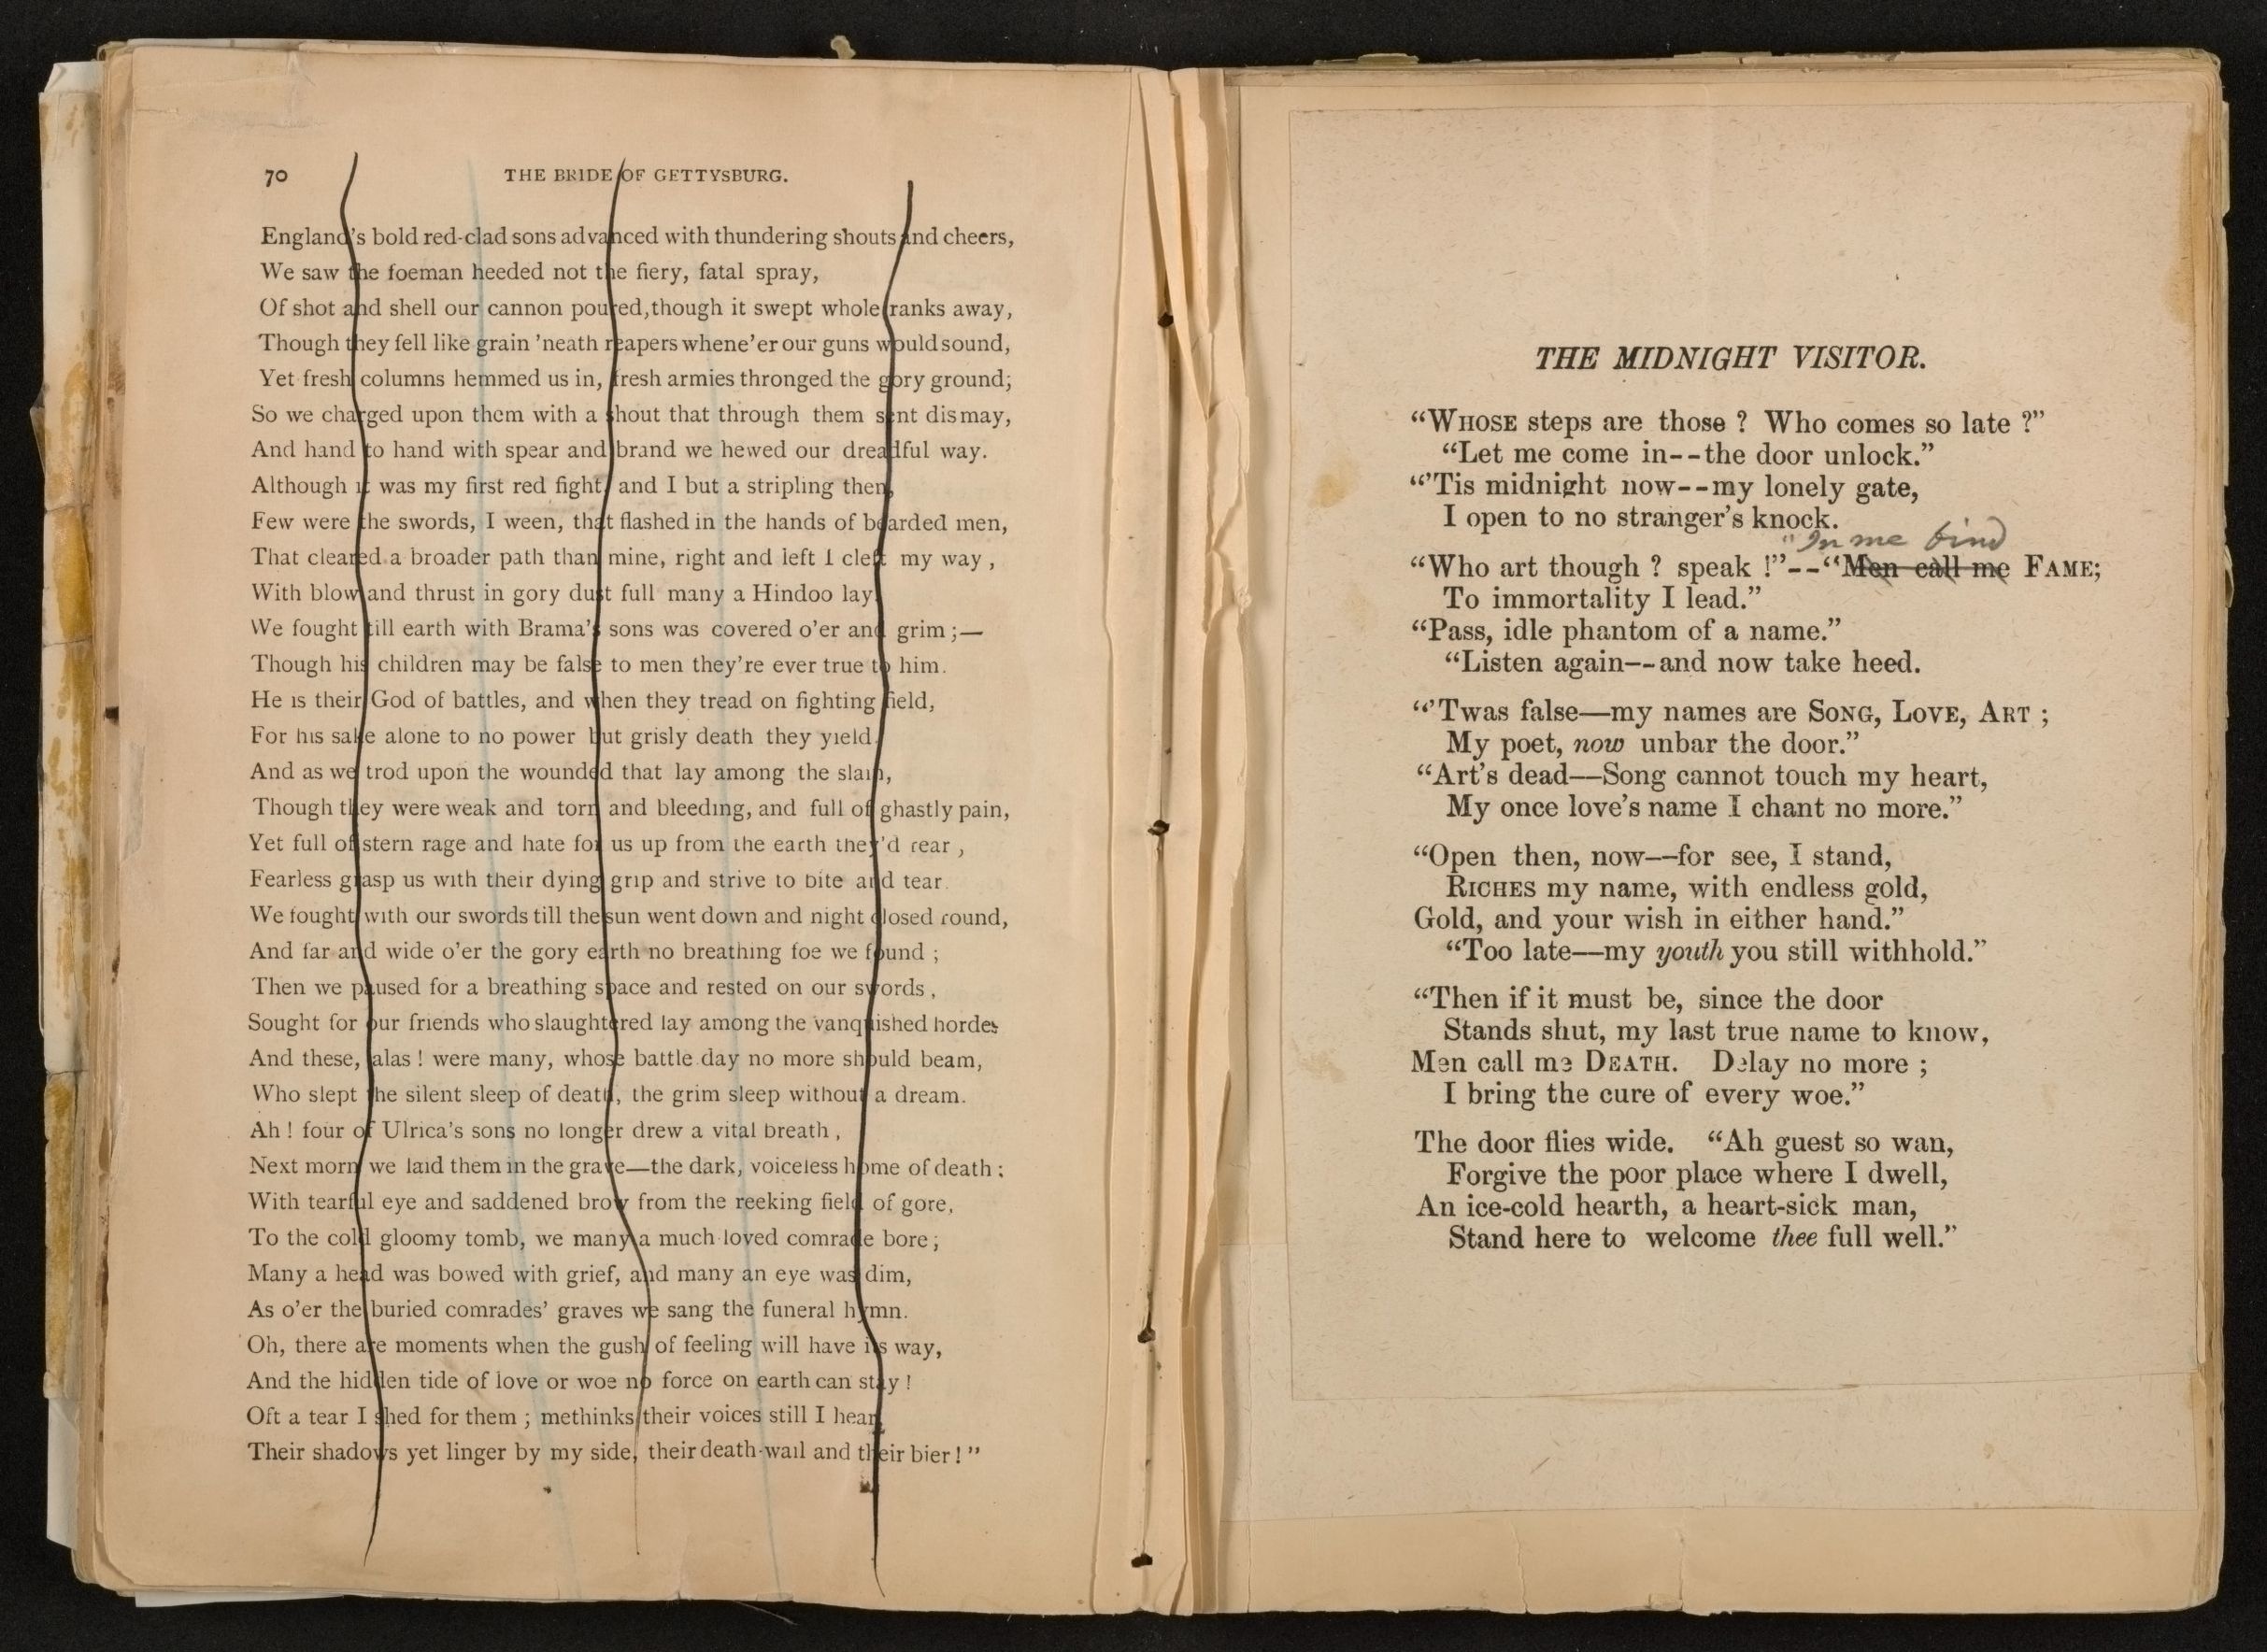 70 THE BRIDE OF GETTYSBURG.
England's bold red-clad sons advanced with thundering shouts and cheers,
We saw the foeman heeded not the fiery, fatal spray,
Of shot and shell our cannon poured, though it swept whole ranks away,
Though they fell like grain 'neath reapers whene'er our guns would sound,
Yet fresh columns hemmed us in, fresh armies thronged the gory ground;
So we charged upon them with a shout that through them sent dismay,
And hand to hand with spear and brand we hewed our dreadful way.
Although it was my first red fight, and I but a stripling then,
Few were the swords, I ween, that flashed in the hands of bearded men,
That cleared a broader path than mine, right and left I cleft my way,
With blow and thrust in gory dust full many a Hindoo lay.
We fought till earth with Brama's sons was covered o'er and grim;—
Though his children may be false to men they're ever true to him.
He is their God of battles, and when they tread on fighting field,
For his sake alone to no power but grisly death they yield.
And as we trod upon the wounded that lay among the slain,
Though they were weak and torn and bleeding, and full of ghastly pain,
Yet full of stern rage and hate for us up from the earth they'd rear,
Fearless grasp us with their dying grip and strive to bite and tear.
We fought with our swords till the sun went down and night closed round,
And far and wide o'er the gory earth no breathing foe we found;
Then we paused for a breathing space and rested on our swords,
Sought for our friends who slaughtered lay among the vanquished hordes
And these, alas! were many, whose battle day no more should beam,
Who slept the silent sleep of death, the grim sleep without a dream.
Ah! four of Ulrica's sons no longer drew a vital breath,
Next morn we laid them in the grave—the dark, voiceless home of death;
With tearful eye and saddened brow from the reeking field of gore,
To the cold gloomy tomb, we many a much loved comrade bore;
Many a head was bowed with grief, and many an eye was dim,
As o'er the buried comrades' graves we sang the funeral hymn.
Oh, there are moments when the gush of feeling will have its way,
And the hidden tide of love or woe no force on earth can stay!
Oft a tear I shed for them; methinks their voices still I hear,
Their shadows yet linger by my side, their death-wail and their bier!"
THE MIDNIGHT VISITOR.
"WHOSE steps are those? Who comes so late?"
"Let me come in--the door unlock."
"'Tis midnight now--my lonely gate,
I open to no stranger's knock.
"In me find
"Who art though? speak!"--"Men call me FAME;
To immortality I lead."
"Pass, idle phantom of a name."
"Listen again--and now take heed.
"'Twas false—my names are SONG, LOVE, ART;
My poet, now unbar the door."
"Art's dead—Song cannot touch my heart,
My once love's name I chant no more."
"Open then, now—for see, I stand,
RICHES my name, with endless gold,
Gold, and your wish in either hand."
"Too late—my youth you still withhold."
"Then if it must be, since the door
Stands shut, my last true name to know,
Men call me DEATH. Delay no more;
I bring the cure of every woe."
The door flies wide. "Ah guest so wan,
Forgive the poor place where I dwell,
An ice-cold hearth, a heart-sick man,
Stand here to welcome thee full well."